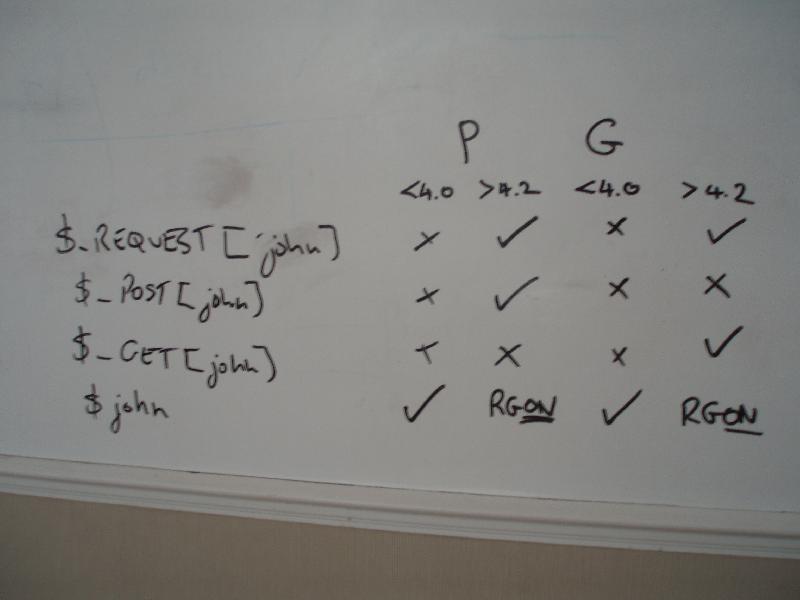 P G
<4.0 >4.2 <4.0 >4.2
$_REQUEST['john] × ✓ × ✓
$_POST[john] × ✓ × ×
$_GET[john] × × × ✓
$john ✓ RGON ✓ RGON